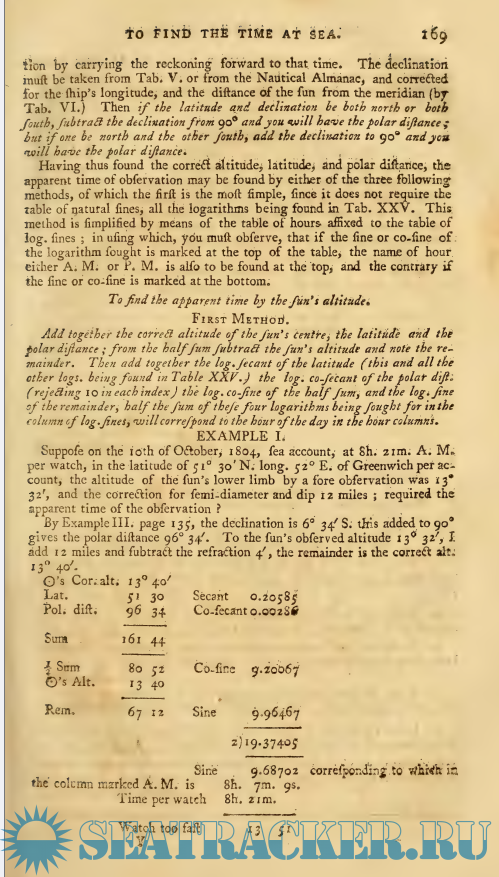 TO FIND THE TIME AT SEA. 169
tion by carrying the reckoning forward to that time. The declination
muſt be taken from Tab. V. or from the Nautical Almanac, and corrected
for the ſhip's longitude, and the diſtance of the ſun from the meridian (by
Tab. VI.) Then if the latitude and declination be both north or both
ſouth, ſubtract the declination from 90° and you will have the polar diſtance;
but if one be north and the other ſouth, add the declination to 90° and you
will have the polar diſtance.
Having thus found the correct altitude, latitude, and polar diſtance, the
apparent time of obſervation may be found by either of the three following
methods, of which the firſt is the moſt ſimple, ſince it does not require the
table of natural ſines, all the logarithms being found in Tab. XXV. This
method is ſimplified by means of the table of hours affixed to the table of
log. ſines; in uſing which, you muſt obſerve, that if the ſine or co-ſine of
the logarithm ſought is marked at the top of the table, the name of hour
either A. M. or P. M. is alſo to be found at the top, and the contrary if
the ſine or co-ſine is marked at the bottom.
To find the apparent time by the ſun's altitude.
FIRST METHOD.
Add together the correct altitude of the ſun's centre, the latitude and the
polar diſtance; from the half ſum ſubtract the ſun's altitude and note the re-
mainder. Then add together the log. ſecant of the latitude (this and all the
other logs. being found in Table XXV.) the log. co-ſecant of the polar diſt.
(rejecting 10 in each index) the log. co-ſine of the half ſum, and the log. ſine
of the remainder, half the ſum of theſe four logarithms being ſought for in the
column of log. ſines, will correſpond to the hour of the day in the hour columns.
EXAMPLE I.
Suppoſe on the 10th of October, 1804, ſea account, at 8h. 21m. A. M.
per watch, in the latitude of 51° 30′ N. long. 52° E. of Greenwich per ac-
count, the altitude of the ſun's lower limb by a fore obſervation was 13°
32′, and the correction for ſemi-diameter and dip 12 miles; required the
apparent time of the obſervation?
By Example III. page 135, the declination is 6° 34′ S. this added to 90°
gives the polar diſtance 96° 34′. To the ſun's obſerved altitude 13° 32′, I
add 12 miles and ſubtract the refraction 4′, the remainder is the correct alt.
13° 40′.
☉'s Cor. alt. 13° 40′
Lat. 51 30 Secant 0.20585
Pol. diſt. 96 34 Co-ſecant 0.00286
Sum 161 44
½ Sum 80 52 Co-ſine 9.20067
☉'s Alt. 13 40
Rem. 67 12 Sine 9.96467
2)19.37405
Sine 9.68702 correſponding to which in
the column marked A. M. is 8h. 7m. 9s.
Time per watch 8h. 21m.
Watch too faſt 13 51
V
SEATRACKER.RU